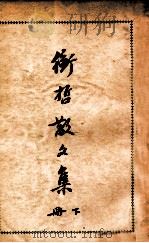 衡哲散文集
下冊